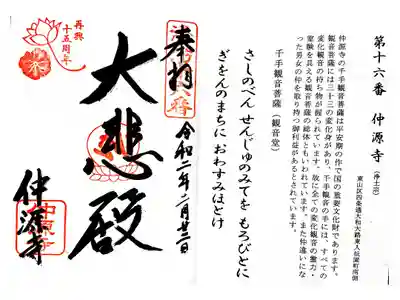 第十六番　仲源寺　（浄土宗）
東山区四条通大和大路東入祇園町南側
仲源寺の千手観音菩薩は平安期の作で国の重要文化財であります。
観音菩薩には三十三の変化身があり、千手観音の手には、すべての
変化観音の持ち物が握られています。故に全ての変化観音の霊力・
霊験を具える観音菩薩の総体ともいわれています。また仲違いにな
った男女の仲を取り持つ御利益があるとされています。
千手観音菩薩（観音堂）
さしのべん　せんじゅのみてを　もろびとに
ぎをんのまちに　おわすみほとけ
奉拝
令和二年二月廿二日
大悲殿
仲源寺
再興
十五周年